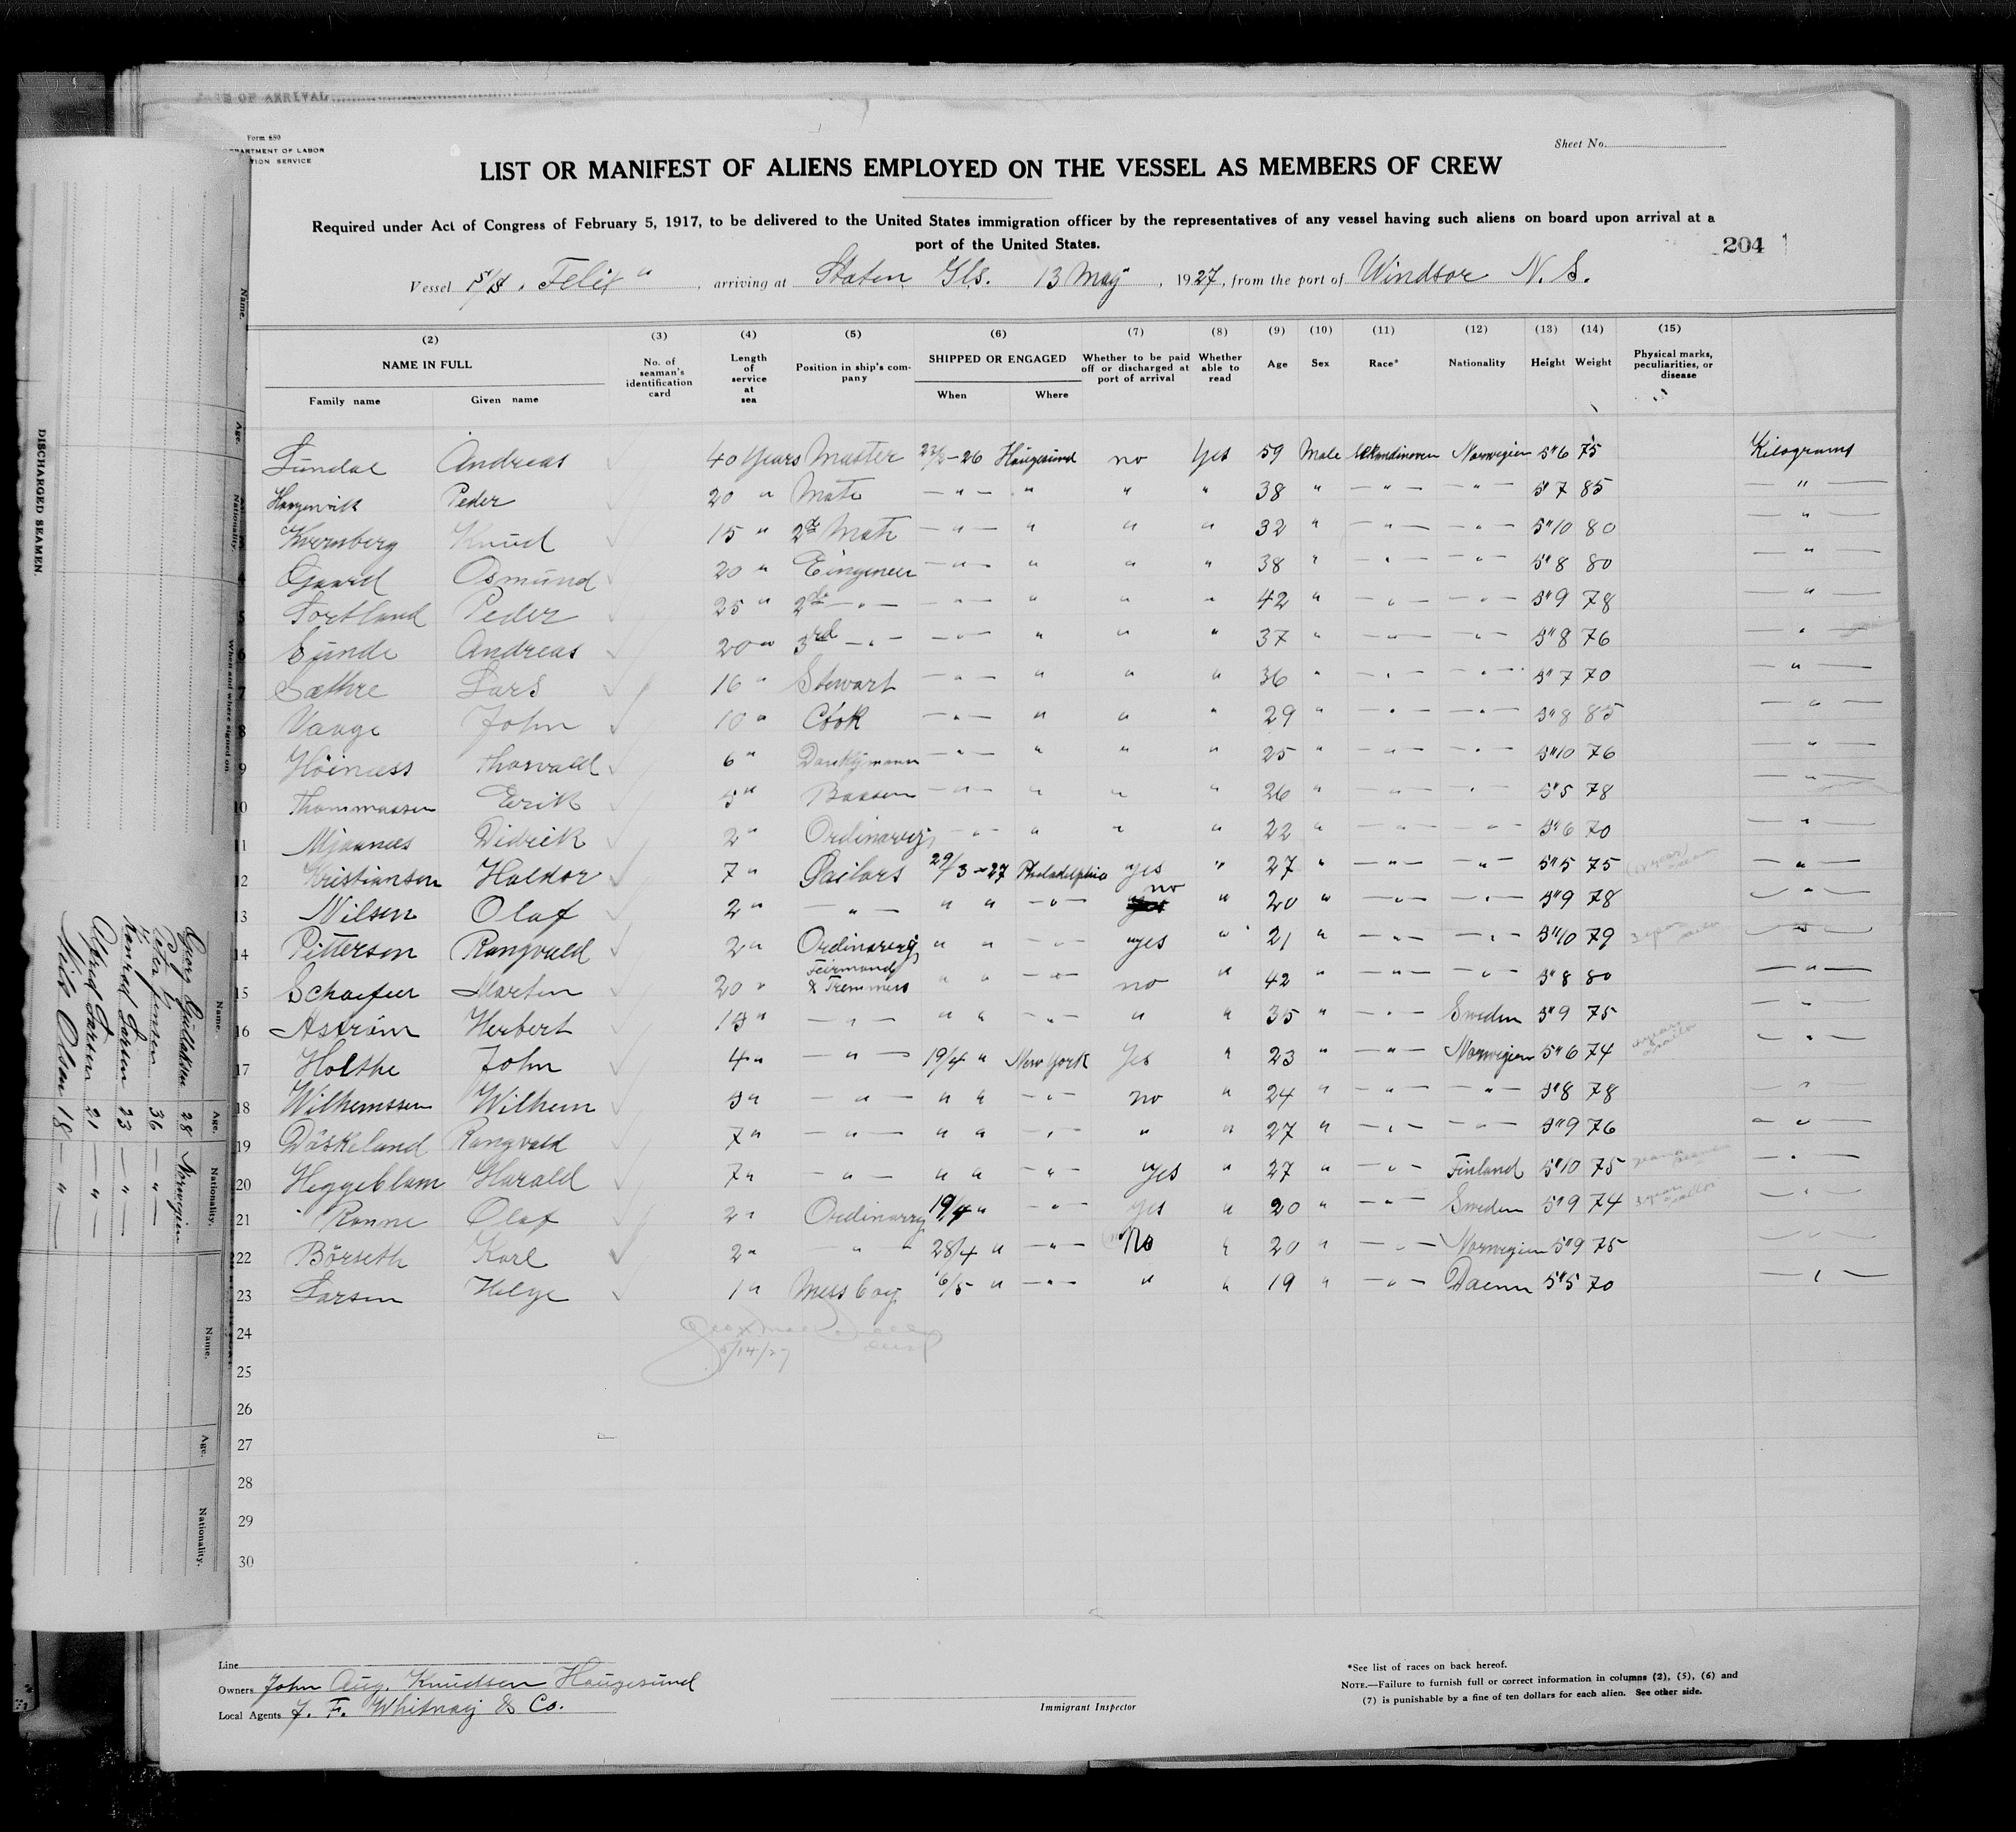 OF ARRIVAL
Form 680
DEPARTMENT OF LABOR
SERVICE
Sheet No.
LIST OR MANIFEST OF ALIENS EMPLOYED ON THE VESSEL AS MEMBERS OF CREW
Required under Act of Congress of February 5, 1917, to be delivered to the United States immigration officer by the representatives of any vessel having such aliens on board upon arrival at a
port of the United States.
204
Vessel S/S. Felix", arriving at Staten Isls. 13 May, 1927, from the port of Windsor N. S.
(2) (3) (4) (5) (6) (7) (8) (9) (10) (11) (12) (13) (14) (15)
NAME IN FULL
Family name Given name
No. of seaman's identification card
Length of service at sea
Position in ship's company
SHIPPED OR ENGAGED
When Where
Whether to be paid off or discharged at port of arrival
Whether able to read
Age Sex Race* Nationality Height Weight
Physical marks, peculiarities, or disease
Lundal Andreas 40 Years Master 26 Haugesund no Yes 59 Male Norwegien 5"6 75 Kilograms
Peder 20 " Mate — " — " " " 38 " — " — — " — 5"7 85 — " —
Kvernberg Knud 15 " 2nd Mate — " — " " " 32 " — " — — " — 5"10 80 — " —
4 Osmund 20 " Eingeneer — " — " " " 38 " — " — — " — 5"8 80 — " —
5 Sortland Peder 25 " 2nd — " — — " — " " " 42 " — " — — " — 5"9 78 — " —
6 Sunde Andreas 20 " 3rd — " — — " — " " " 37 " — " — — " — 5"8 76 — " —
7 Sæthre Lars 16 " Stewart — " — " " " 36 " — " — — " — 5"7 70 — " —
8 Vaage John 10 " Cook — " — " " " 29 " — " — — " — 5"8 85 — " —
9 Höinæss Thorvald 6 " Donkeymann — " — " " " 25 " — " — — " — 5"10 76 — " —
10 Thommassen Erik 5 " — " — " " " 26 " — " — — " — 5"5 78 — " —
11 Mjaanæs Didrik 2 " Ordinarry — " — " " " 22 " — " — — " — 5"6 70 — " —
12 Kristiansen Haldor 7 " Sailors 29/3 - 27 Philadelphia yes " 27 " — " — — " — 5"5 75 — " —
13 Nilsen Olaf 2 " — " — " " — " — no " 20 " — " — — " — 5"9 78 — " —
14 Pettersen Rangvald 2 " Ordinarry " " — " — yes " 21 " — " — — " — 5"10 79 — " —
15 Schaefer Martin 20 " Feirmand & Tremmers " " — " — no " 42 " — " — — " — 5"8 80 — " —
16 Aström Herbert 15 " — " — " " — " — " " 35 " — " — Sweden 5"9 75 — " —
17 Holthe John 4 " — " — 19/4 " New York Yes " 23 " — " — Norwegien 5"6 74 — " —
18 Wilhemssen Wilhem 5 " — " — " " — " — no " 24 " — " — — " — 5"8 78 — " —
19 Döskeland Rangvald 7 " — " — " " — " — " " 27 " — " — — " — 5"9 76 — " —
20 Heggeblam Harald 7 " — " — " " — " — yes " 27 " — " — Finland 5"10 75 — " —
21 Ronne Olaf 2 " Ordinarry 19/4 " — " — yes " 20 " — " — Sweden 5"9 74 — " —
22 Börseth Karl 2 " — " — 28/4 " — " — No " 20 " — " — Norwegien 5"9 75 — " —
23 Larsen Helge 1 " Messboy 6/5 " — " — " " 19 " — " — 5"5 70 — " —
24
5/14/27
25
26
27
28
29
30
Line
Owners John Aug. Knudsen Haugesund
Local Agents J. F. Whitnay & Co.
Immigrant Inspector
*See list of races on back hereof.
NOTE.—Failure to furnish full or correct information in columns (2), (5), (6) and
(7) is punishable by a fine of ten dollars for each alien. See other side.
DISCHARGED SEAMEN.
Name. Age. Nationality. When and where signed on.
Name. Age. Nationality.
Georg Gullaksen 28 Norwegien
Peter Jensen 36 — " —
Konrad Larsen 23 — " —
Alfred Larsen 21 — " —
Nils Olsen 18 — " —
Name. Age. Nationality.